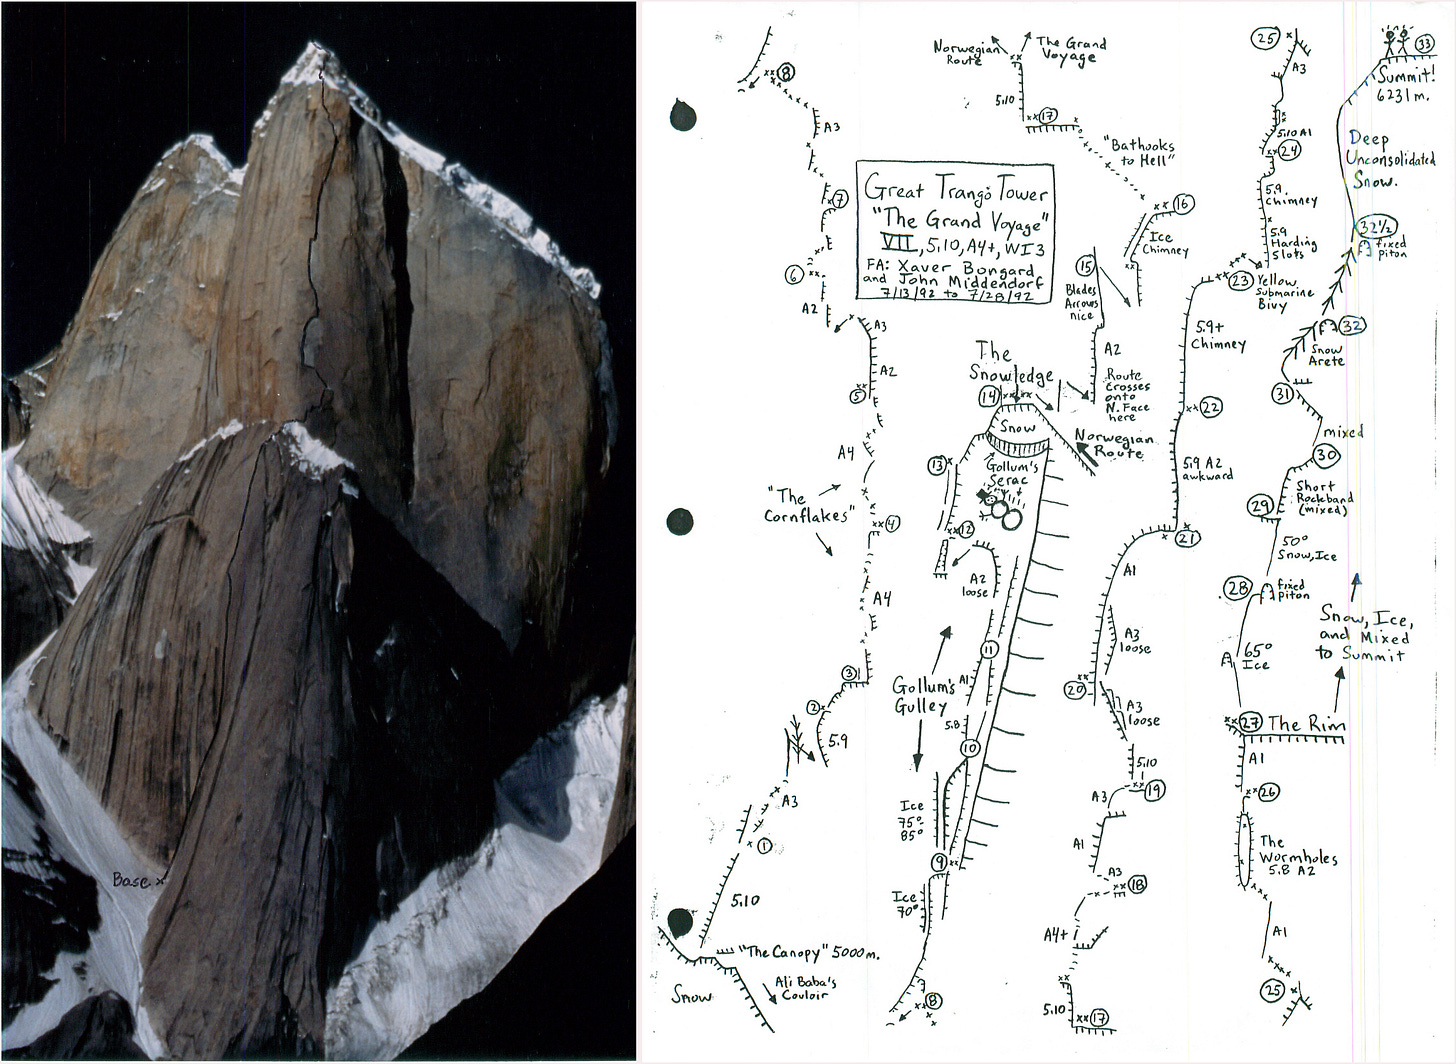 Base x
8
A3
7
6
A2
A3
A2
5
A4
"The
Cornflakes"
4
A4
3
2
5.9
A3
1
5.10
"The Canopy" 5000m.
Snow
Ali Baba's
Couloir
Great Trango Tower
"The Grand Voyage"
VII, 5.10, A4+, WI 3
FA: Xaver Bongard
and John Middendorf
7/13/92 to 7/28/92
Norwegian
Route
The Grand
Voyage
5.10
17
"Bathooks
to Hell"
16
Ice
Chimney
15
Blades
Arrows
nice
A2
Route
crosses
onto
N. Face
here
The
Snowledge
14
Snow
Norwegian
Route
Gollum's
Serac
13
12
A2
loose
11
A1
Gollum's
Gulley
5.8
10
Ice
75°-
85°
9
Ice
70°
8
25
A3
5.10 A1
24
5.9
Chimney
5.9
Harding
Slots
23
Yellow
Submarine
Bivy
5.9+
Chimney
22
5.9 A2
awkward
21
A1
A3
loose
20
A3
loose
5.10
19
A3
A1
A3
18
A4+
5.10
17
33
Summit!
6231m.
Deep
Unconsolidated
Snow.
32½
fixed
piton
32
Snow
Arete
31
mixed
30
Short
Rockband
(mixed)
29
50°
Snow, Ice
28
fixed
piton
65°
Ice
Snow, Ice,
and Mixed
to Summit
27
The Rim
A1
26
The
Wormholes
5.8 A2
A1
25